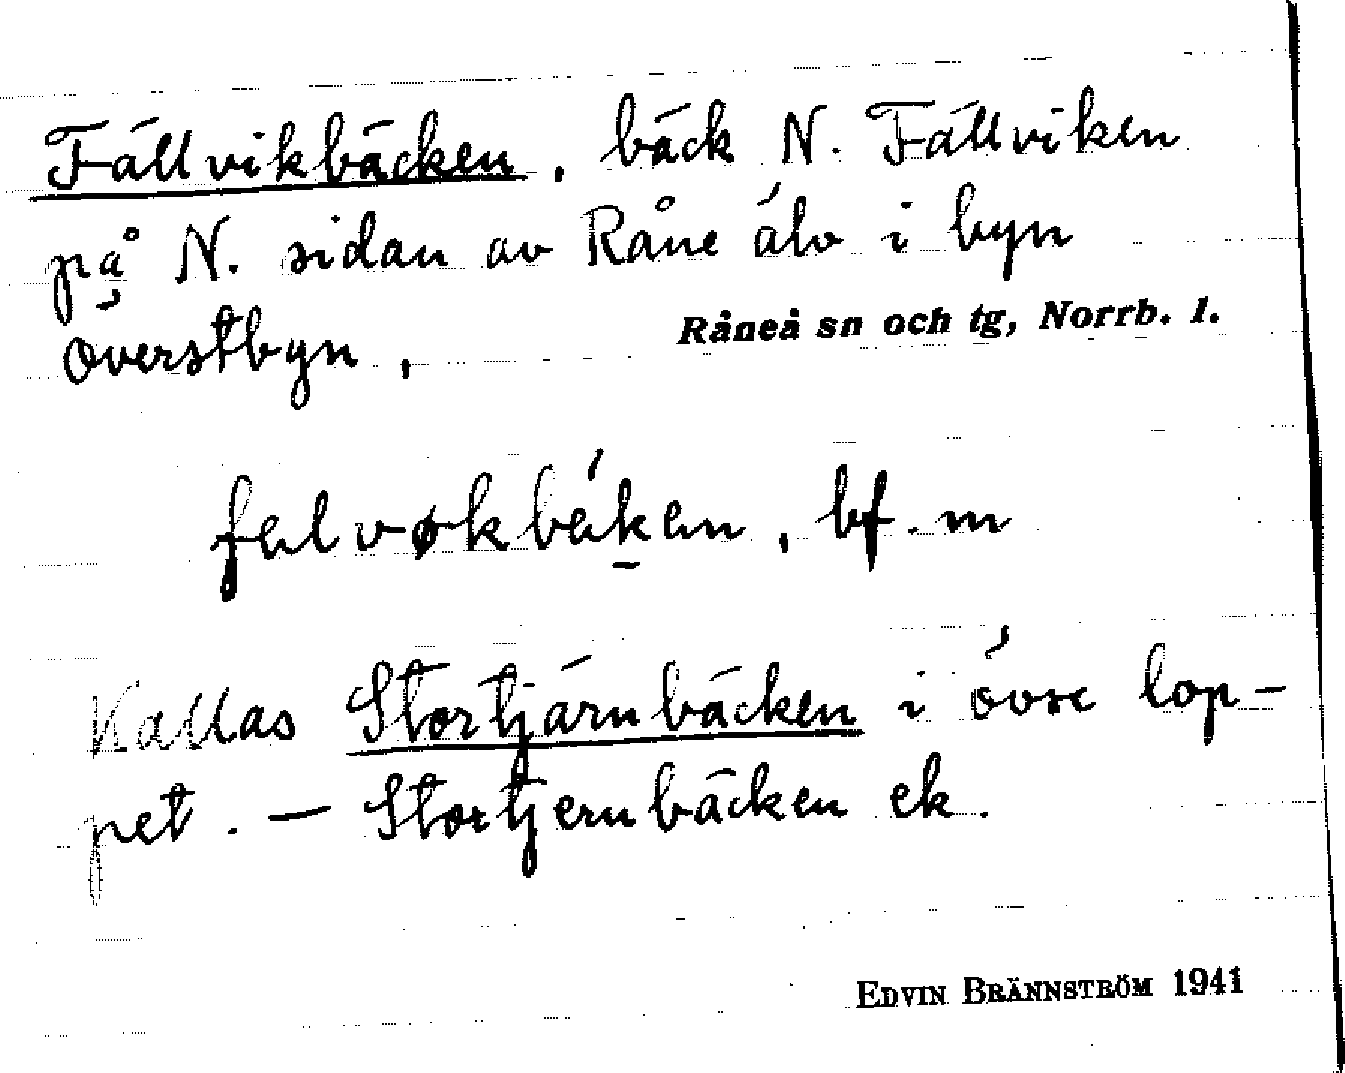 Fällvikbäcken, bäck N. Fällviken
på N. sidan av Råne älv i byn
Överstbyn,
Råneå sn och tg, Norrb. l.
bf. m
Kallas Stortjärnbäcken i övre lop-
pet. — Stortjernbäcken ek.
EDVIN BRÄNNSTRÖM 1941